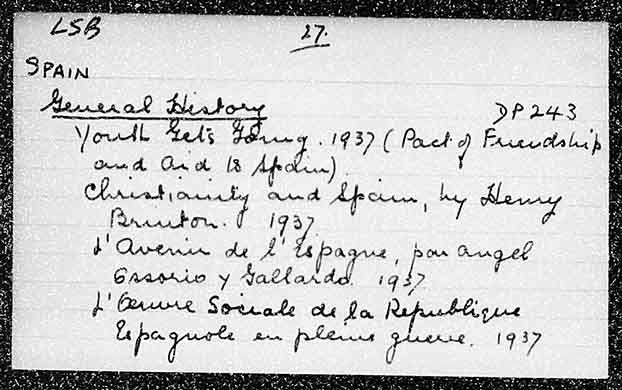 LSB
27.
SPAIN
General History
DP243
Youth Gets Going. 1937 (Pact of Friendship
and Aid to Spain)
Christianity and Spain, by Henry
Brinton. 1937
L'Avenir de l'Espagne, par Angel
Ossorio y Gallardo. 1937
L'Œuvre Sociale de la République
Espagnole en pleine guerre. 1937